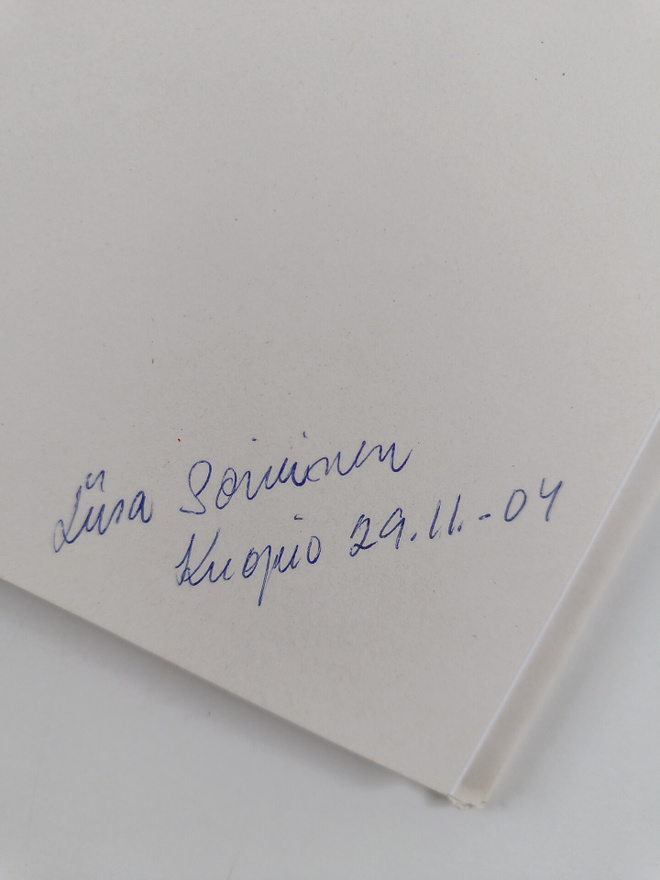 Liisa Soininen
Kuopio 29.11.-04